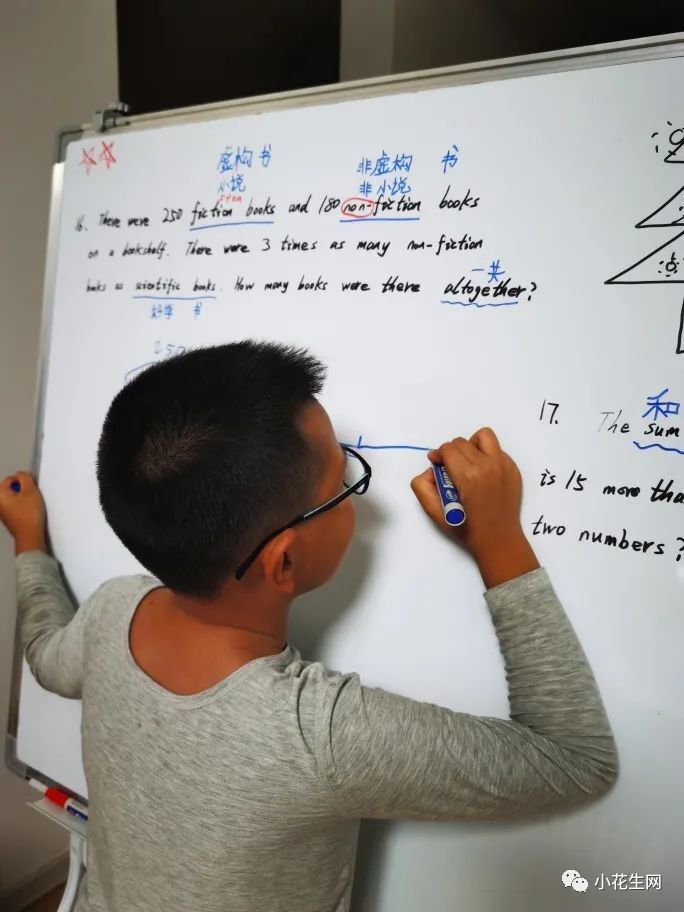 虚构书 非虚构 书
小说 非小说
16. There were 250 fiction books and 180 non-fiction books
on a bookshelf. There were 3 times as many non-fiction
一共
books as scientific books. How many books were there altogether?
科学 书
250
17. 和
The sum
is 15 more tha
two numbers?
小花生网